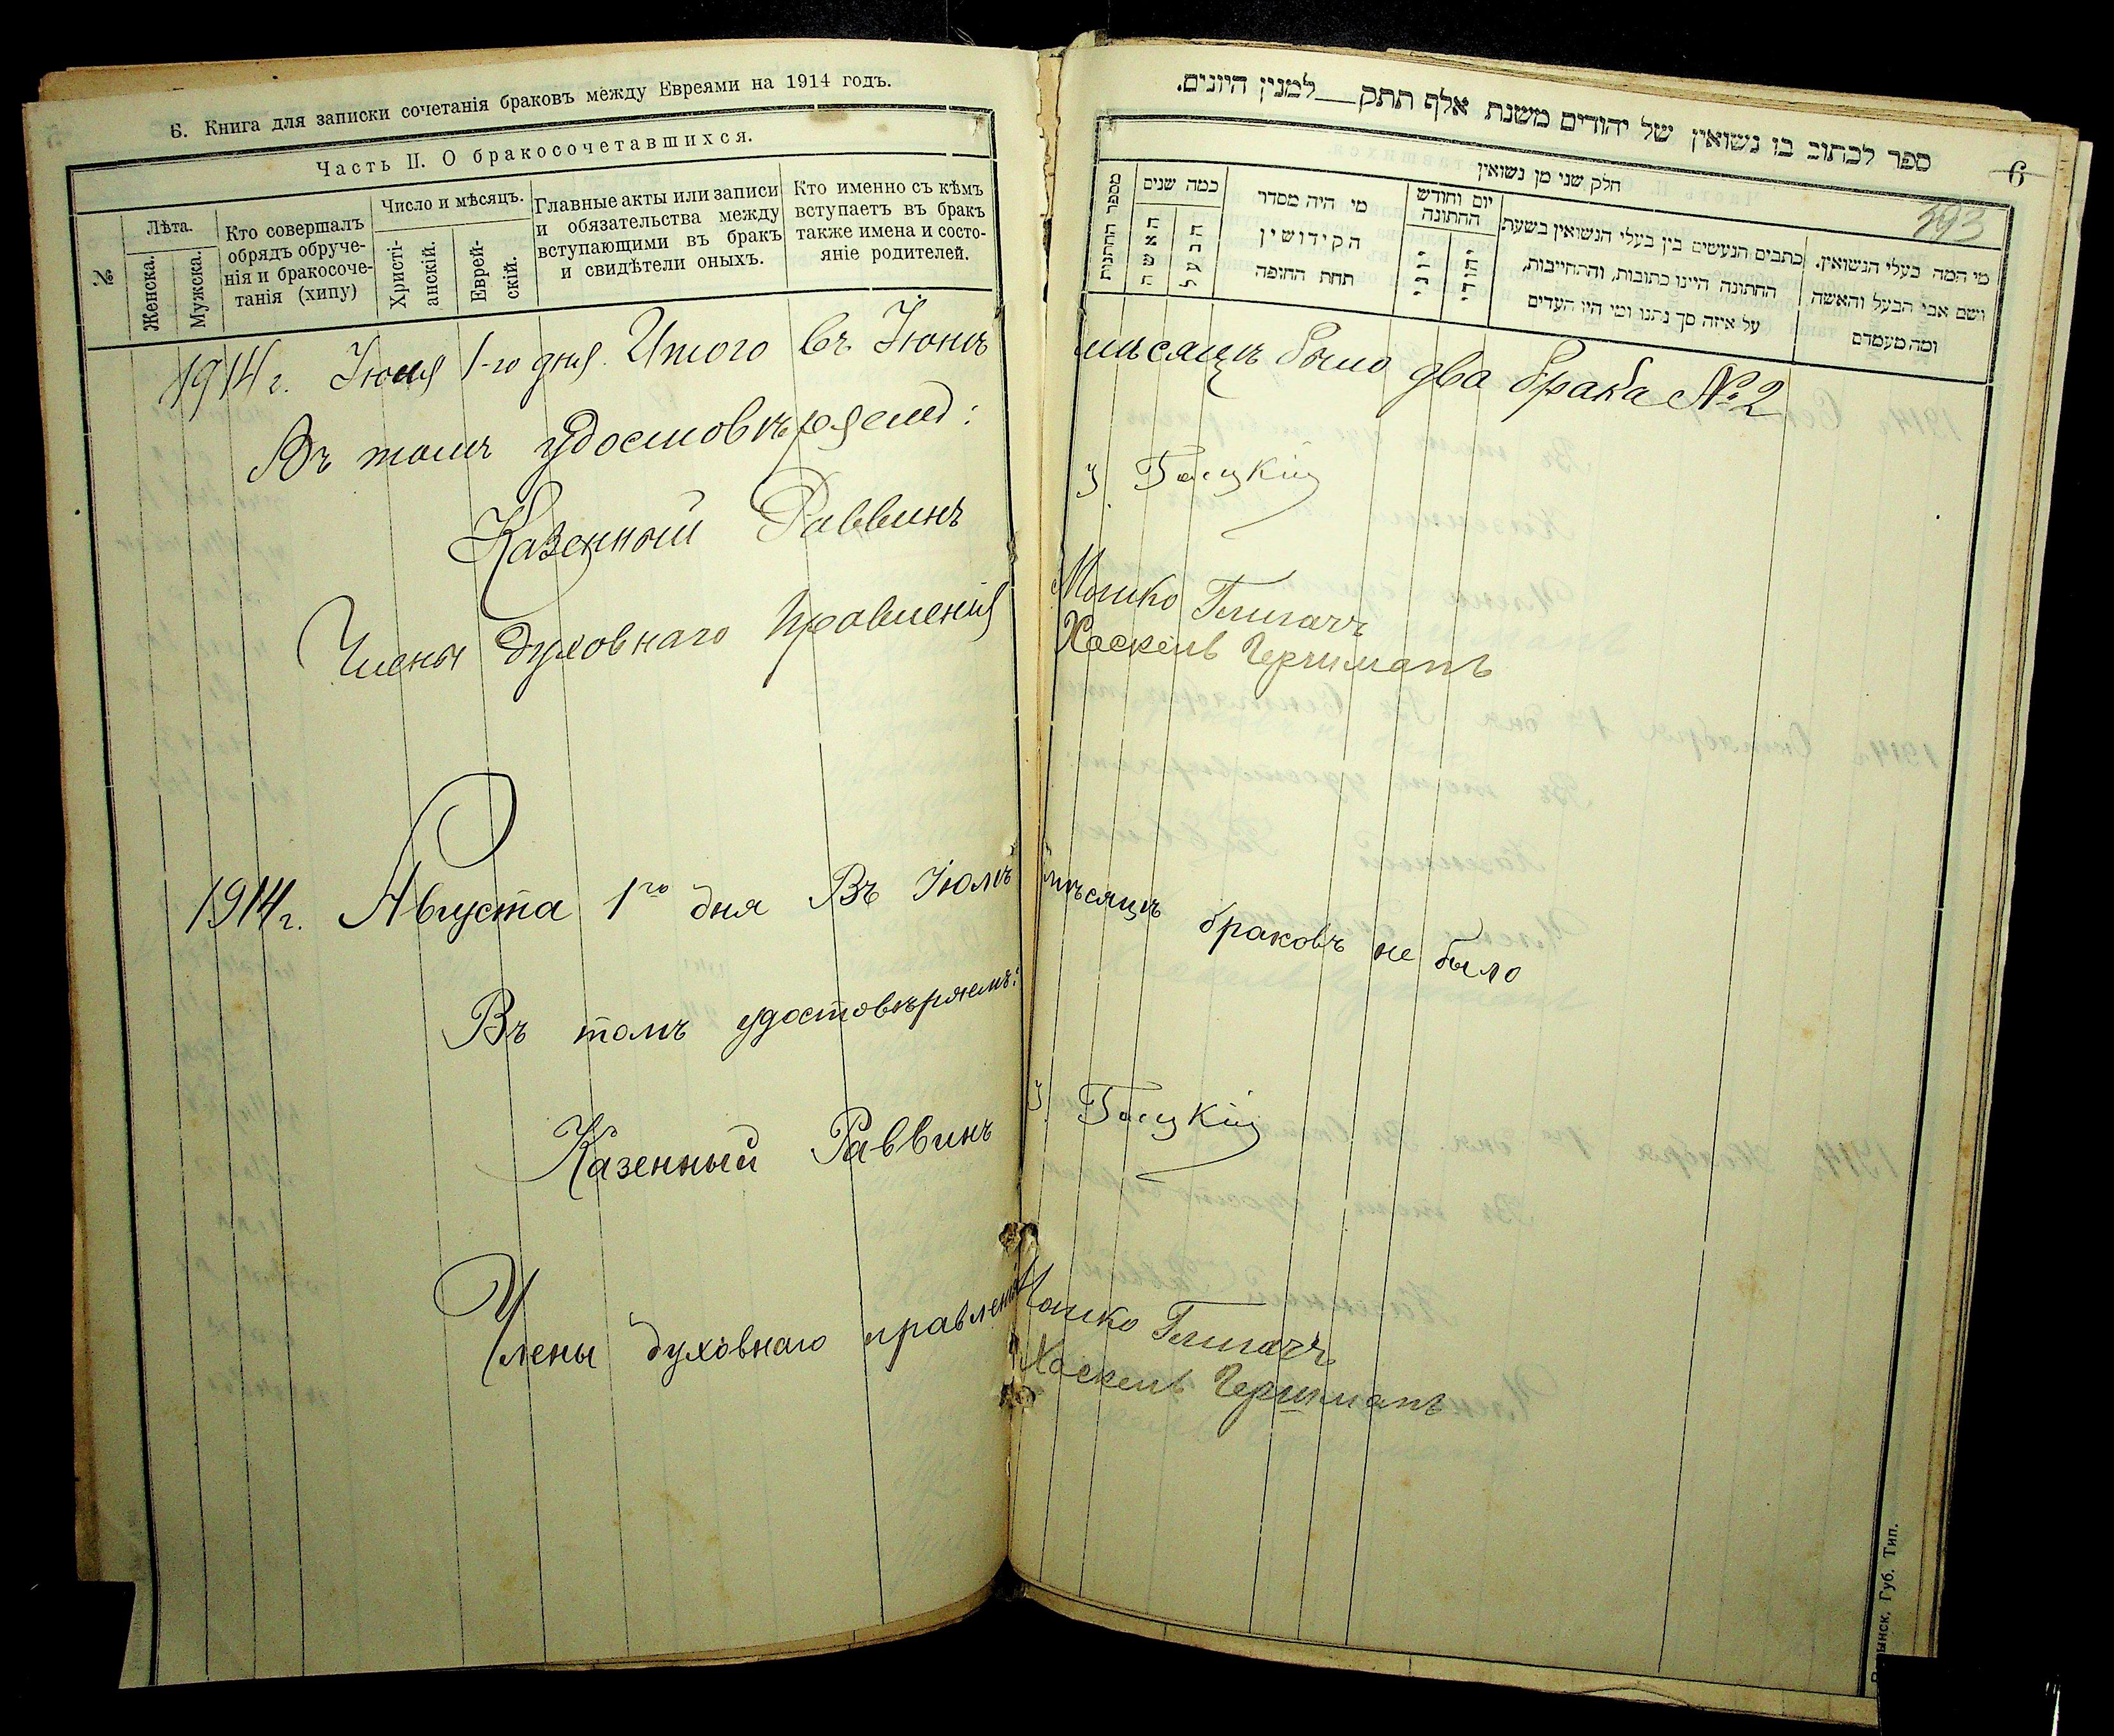 6. Книга для записки сочетанія браковъ между Евреями на 1914 годъ.
Часть II. О бракосочетавшихся.
№
Лѣта.
Женска.
Мужска.
Кто совершалъ
обрядъ обруче-
нія и бракосоче-
танія (хипу)
Число и мѣсяцъ.
Христі-
анскій.
Еврей-
скій.
Главные акты или записи
и обязательства между
вступающими въ бракъ
и свидѣтели оныхъ.
Кто именно съ кѣмъ
вступаетъ въ бракъ
также имена и состо-
яніе родителей.
ספר לכתוב בו נשואין של יהודים משנת אלף תתק למנין היונים.
6
393
חלק שני מן נשואין
מספר החתנות
כמה שנים
האשה
הבעל
מי היה מסדר
הקידושין
תחת החופה
יום וחודש
החתונה
יוני
יהודי
כתבים הנעשים בין בעלי הנשואין בשעת
החתונה היינו כתובות, והתחייבות,
על איזה סך נתנו ומי היו העדים
מי המה בעלי הנשואין.
ושם אבי הבעל והאשה
ומה מעמדם
1914 г. Іюля 1-го дня. Итого въ Іюнѣ мѣсяцѣ было два брака № 2
Въ томъ удостовѣряемъ:
Казенный Раввинъ
Члены Духовнаго Правленія Мошко
Хаскель
1914 г. Августа 1го дня Въ Іюлѣ мѣсяцѣ браковъ не было
Въ томъ удостовѣряемъ:
Казенный Раввинъ
Члены духовнаго правленія Мошко
Хаскель
Губ. Тип.